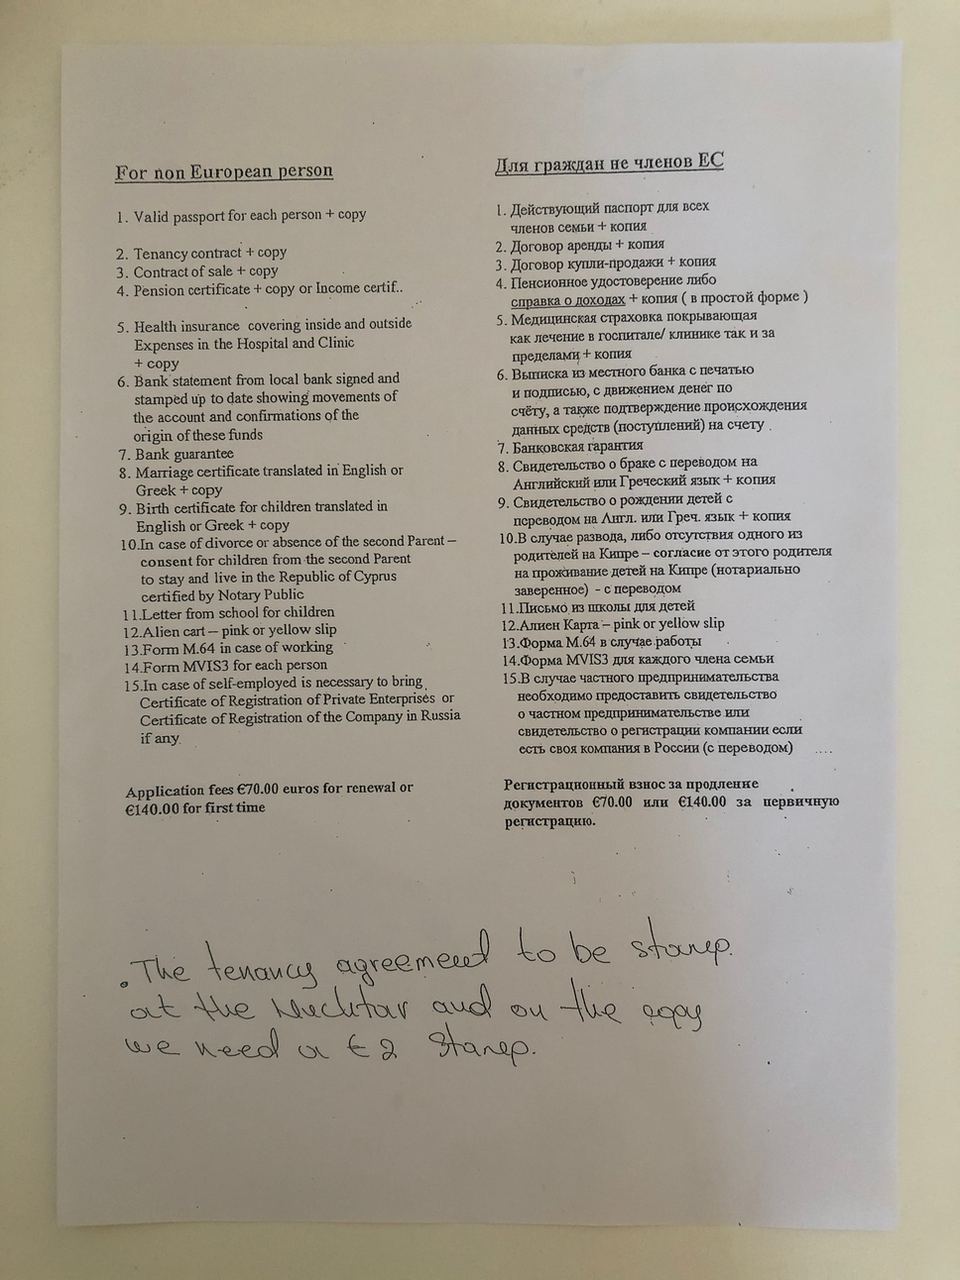 For non European person
1. Valid passport for each person + copy
2. Tenancy contract + copy
3. Contract of sale + copy
4. Pension certificate + copy or Income certif..
5. Health insurance covering inside and outside
Expenses in the Hospital and Clinic
+ copy
6. Bank statement from local bank signed and
stamped up to date showing movements of
the account and confirmations of the
origin of these funds
7. Bank guarantee
8. Marriage certificate translated in English or
Greek + copy
9. Birth certificate for children translated in
English or Greek + copy
10.In case of divorce or absence of the second Parent –
consent for children from the second Parent
to stay and live in the Republic of Cyprus
certified by Notary Public
11.Letter from school for children
12.Alien cart – pink or yellow slip
13.Form M.64 in case of working
14.Form MVIS3 for each person
15.In case of self-employed is necessary to bring
Certificate of Registration of Private Enterprises or
Certificate of Registration of the Company in Russia
if any
Application fees €70.00 euros for renewal or
€140.00 for first time
Для граждан не членов ЕС
1. Действующий паспорт для всех
членов семьи + копия
2. Договор аренды + копия
3. Договор купли-продажи + копия
4. Пенсионное удостоверение либо
справка о доходах + копия ( в простой форме )
5. Медицинская страховка покрывающая
как лечение в госпитале/ клинике так и за
пределами + копия
6. Выписка из местного банка с печатью
и подписью, с движением денег по
счёту, а также подтверждение происхождения
данных средств (поступлений) на счету .
7. Банковская гарантия
8. Свидетельство о браке с переводом на
Английский или Греческий язык + копия
9. Свидетельство о рождении детей с
переводом на Англ. или Греч. язык + копия
10.В случае развода, либо отсутствия одного из
родителей на Кипре – согласие от этого родителя
на проживание детей на Кипре (нотариально
заверенное) - с переводом
11.Письмо из школы для детей
12.Алиен Карта – pink or yellow slip
13.Форма М.64 в случае работы
14.Форма MVIS3 для каждого члена семьи
15.В случае частного предпринимательства
необходимо предоставить свидетельство
о частном предпринимательстве или
свидетельство о регистрации компании если
есть своя компания в России (с переводом) ....
Регистрационный взнос за продление
документов €70.00 или €140.00 за первичную
регистрацию.
. The tenancy agreement to be stamp.
at the Muchtar and on the copy
we need a € 2 Stamp.